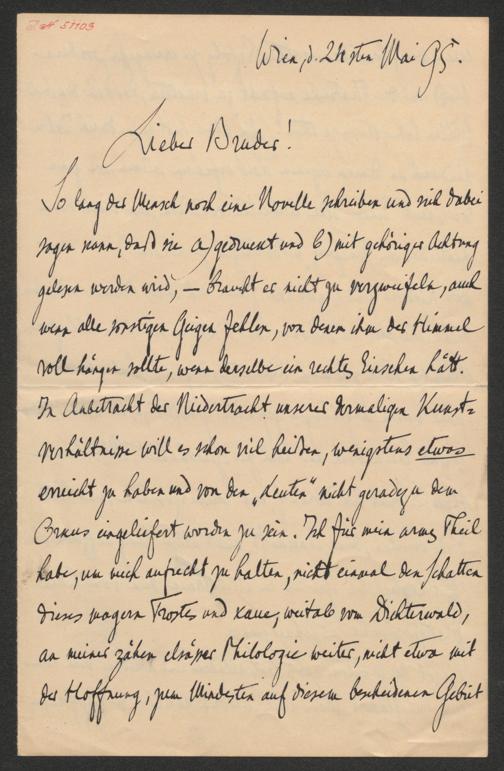 Wien, d. 24sten Mai 95.
Lieber Bruder!
So lang der Mensch noch eine Novelle schreiben und sich dabei
sagen kann, daß sie a) gedruckt und b) mit gehöriger Achtung
gelesen werden wird, — braucht er nicht zu verzweifeln, auch
wenn alle sonstigen Geigen fehlen, von denen ihm der Himmel
voll hängen sollte, wenn derselbe ein rechtes Einsehen hätt.
In Anbetracht der Niedertracht unserer dermaligen Kunst=
verhältnisse will es schon viel heißen, wenigstens etwas
erreicht zu haben und von den „Leuten" nicht geradezu dem
Orcus eingeliefert worden zu sein. Ich für mein armes Theil
habe, um mich aufrecht zu halten, nicht einmal den Schatten
dieses magern Trostes und kaue, weitab vom Dichterwald,
an meiner zähen Philologie weiter, nicht etwa mit
der Hoffnung, zum Mindesten auf diesem bescheidenen Gebiet